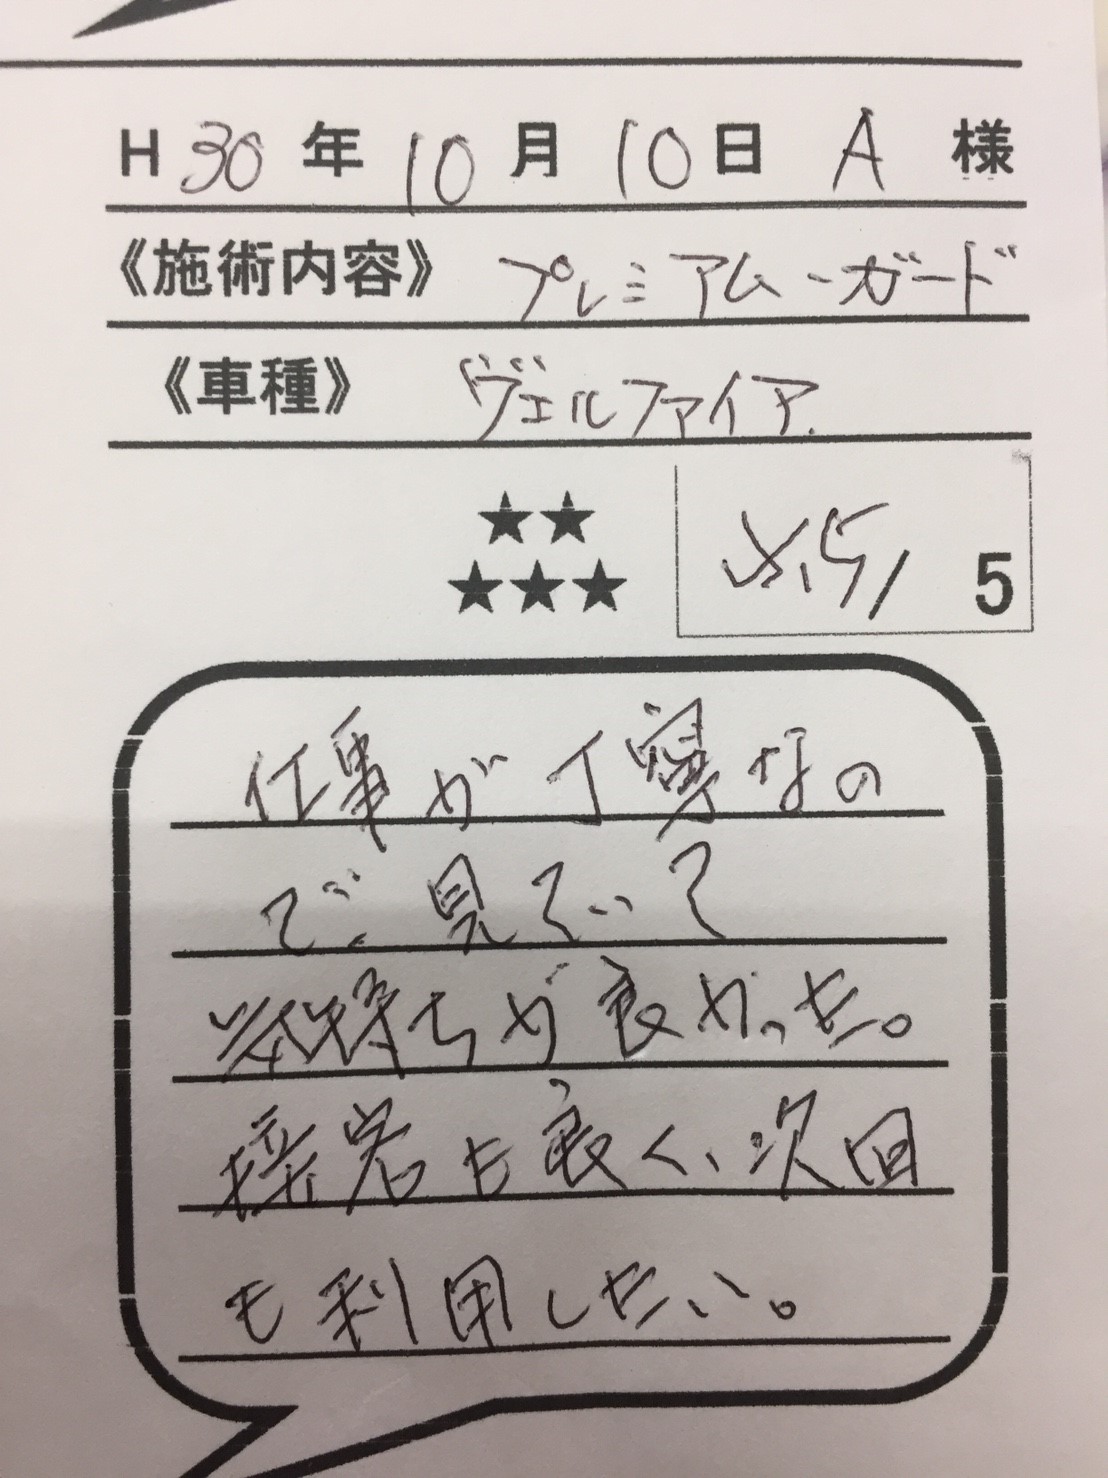 H30年10月10日 A 様
《施術内容》 プレミアム・ガード
《車種》 ヴェルファイア.
★★
★★★
5/ 5
仕事が丁寧なの
で、見ていて
気持ちが良かった。
接客も良く、次回
も利用したい。